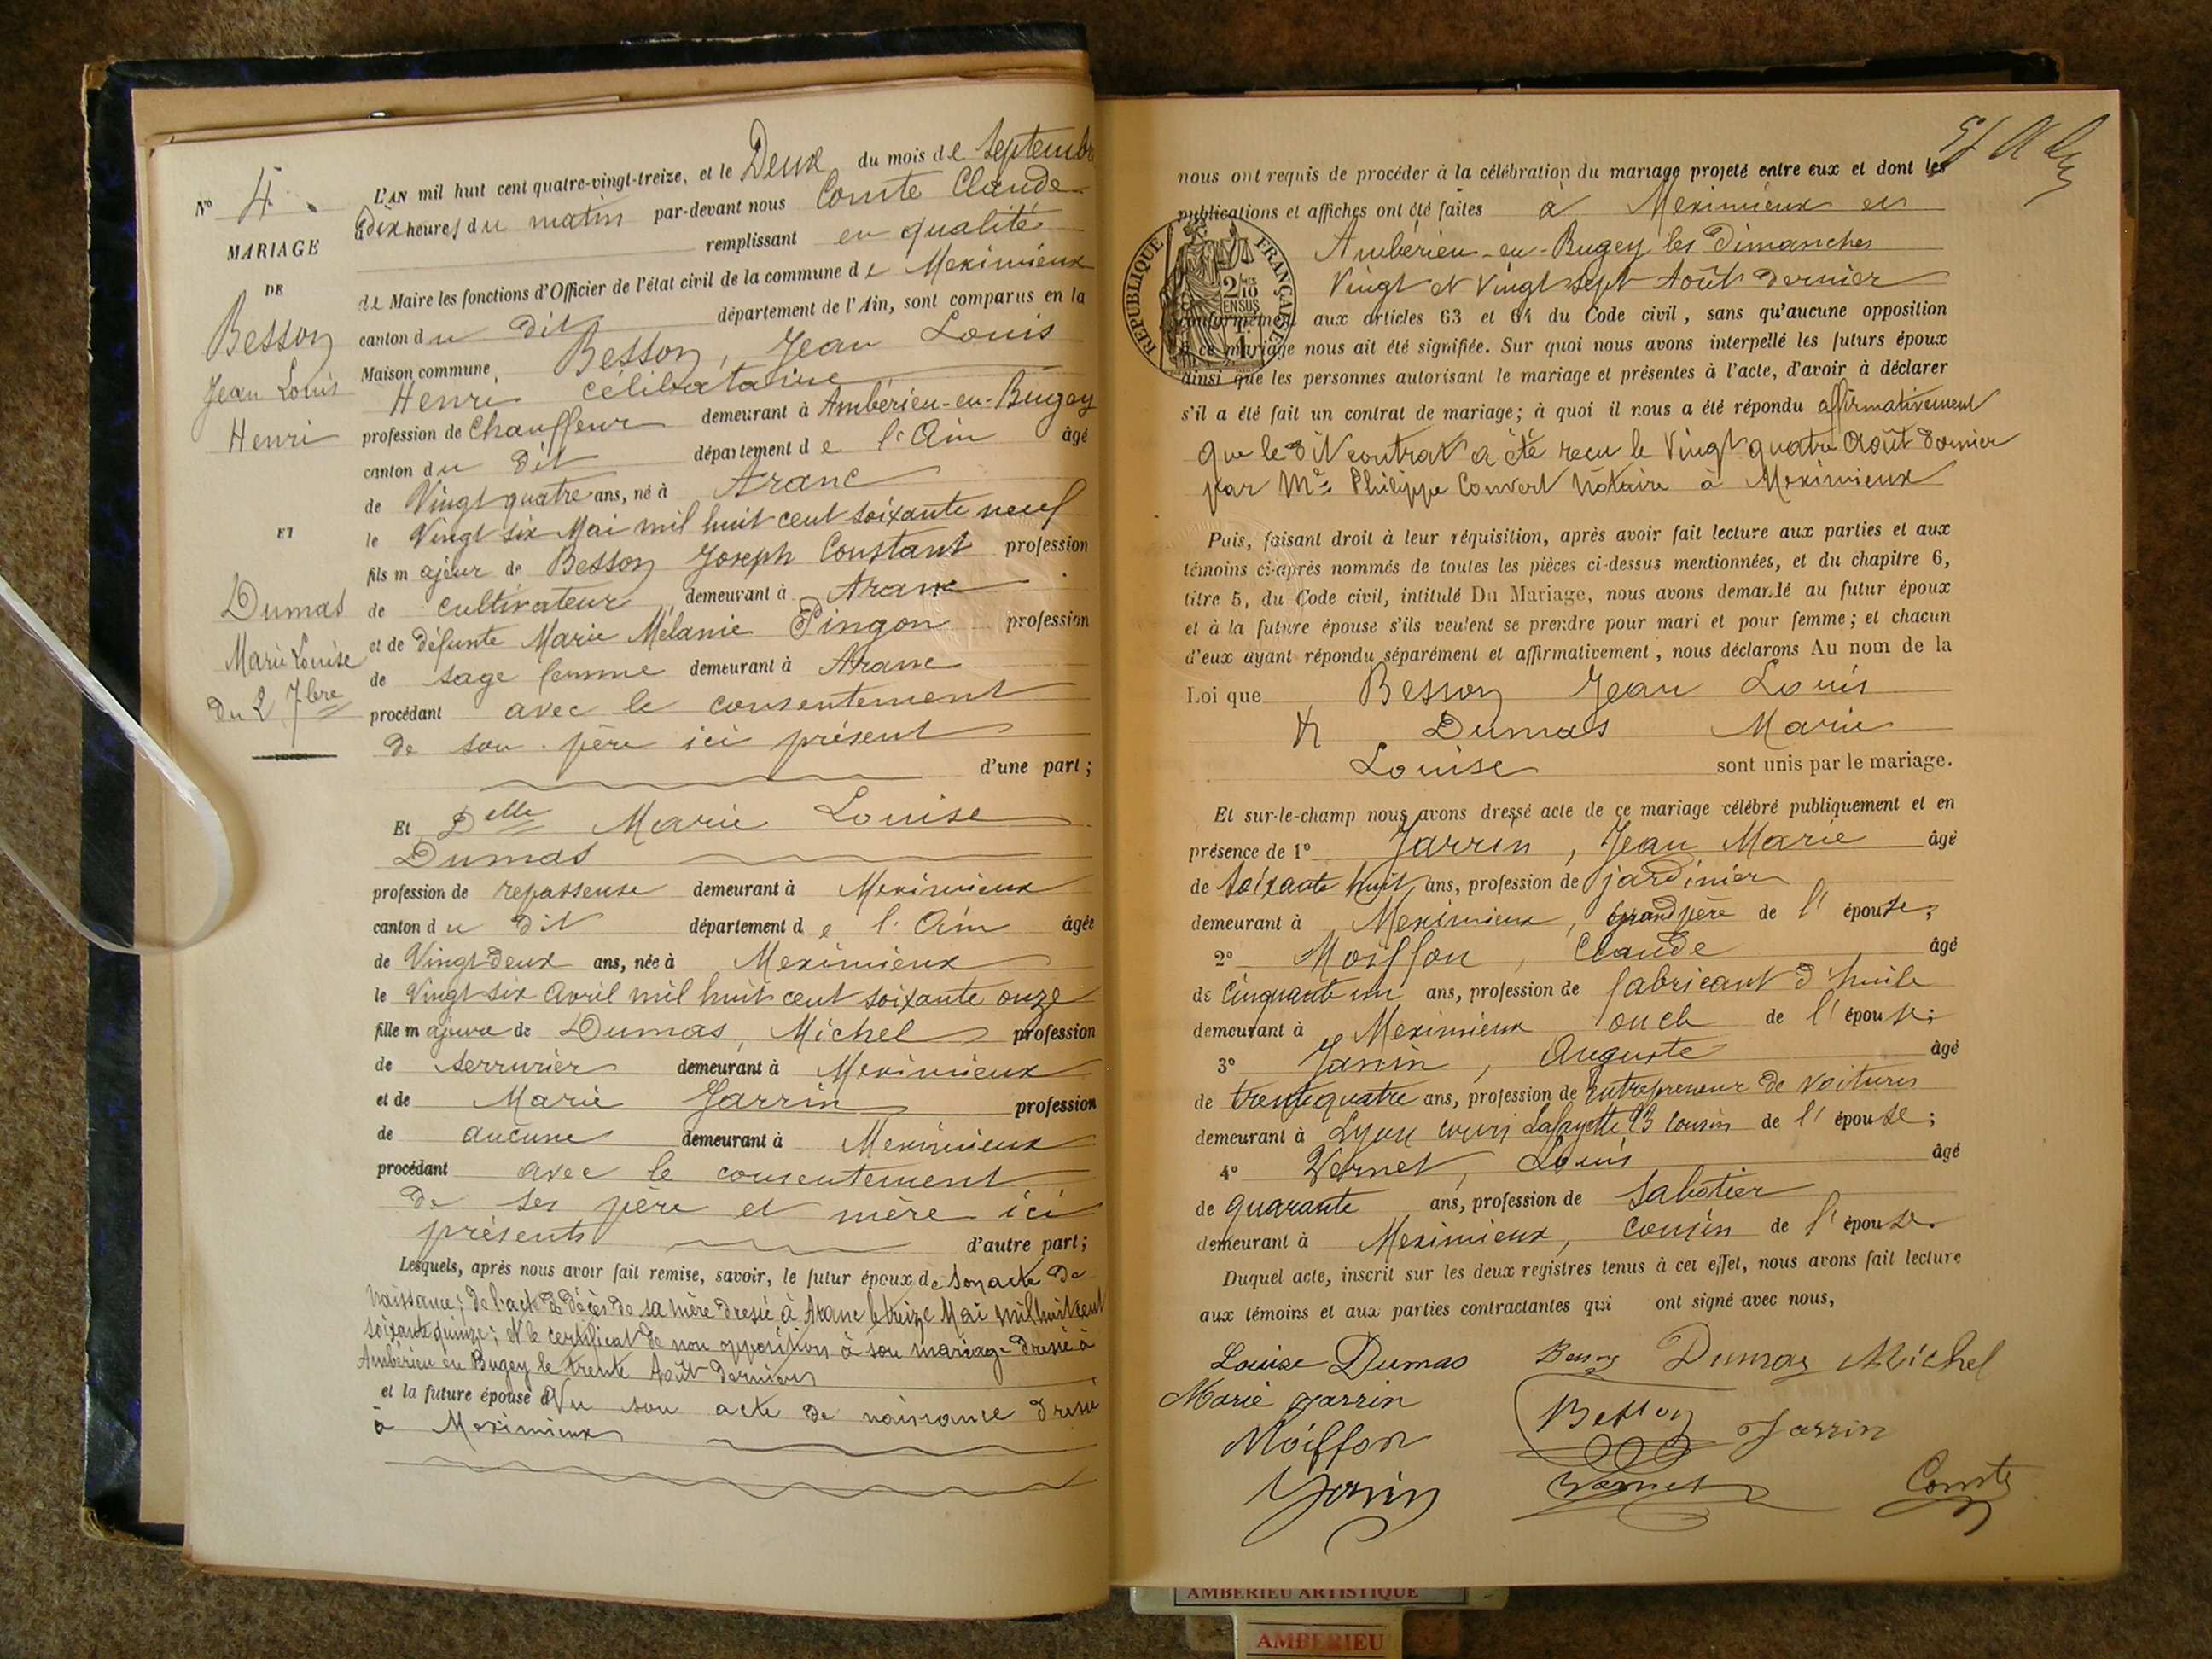 N° 4.
MARIAGE
DE
Besson
Jean Louis
Henri
ET
Dumas
Marie Louise
du 2 7bre
L'AN mil huit cent quatre-vingt-treize, et le Deux du mois de Septembre
à dix heures du matin par-devant nous Comte Claude
remplissant en qualité
de Maire les fonctions d'Officier de l'état civil de la commune de Meximieux
canton du dit département de l'Ain, sont comparus en la
Maison commune, Besson, Jean Louis
Henri célibataire
profession de Chauffeur demeurant à Ambérieu-en-Bugey
canton du dit département de l'Ain âgé
de Vingt quatre ans, né à Aranc
le Vingt six Mai mil huit cent soixante neuf
fils majeur de Besson Joseph Constant profession
de cultivateur demeurant à Aranc
et de défunte Marie Mélanie Pingon profession
de sage femme demeurant à Aranc
procédant avec le consentement
de son père ici présent
d'une part;
Et Delle Marie Louise
Dumas
profession de repasseuse demeurant à Meximieux
canton du dit département de l'Ain âgée
de Vingt deux ans, née à Meximieux
le Vingt six Avril mil huit cent soixante onze
fille majeure de Dumas, Michel profession
de serrurier demeurant à Meximieux
et de Marie Jarrin profession
de aucune demeurant à Meximieux
procédant avec le consentement
de ses père et mère ici
présents d'autre part;
Lesquels, après nous avoir fait remise, savoir, le futur époux de son acte de
naissance; de l'acte de décès de sa mère dressé à Aranc le treize Mai mil huit cent
soixante quinze; et le certificat de non opposition à son mariage dressé à
Ambérieu en Bugey le trente Août dernier
et la future épouse Vu son acte de naissance dressé
à Meximieux
nous ont requis de procéder à la célébration du mariage projeté entre eux et dont les
publications et affiches ont été faites à Meximieux et
Ambérieu-en-Bugey les Dimanches
Vingt et Vingt sept Août dernier
conformément aux articles 63 et 64 du Code civil, sans qu'aucune opposition
à ce mariage nous ait été signifiée. Sur quoi nous avons interpellé les futurs époux
ainsi que les personnes autorisant le mariage et présentes à l'acte, d'avoir à déclarer
s'il a été fait un contrat de mariage; à quoi il nous a été répondu affirmativement
que le dit contrat a été reçu le Vingt quatre Août dernier
par Me Philippe Convert Notaire à Meximieux
RÉPUBLIQUE FRANÇAISE
2/10 EN SUS
Puis, faisant droit à leur réquisition, après avoir fait lecture aux parties et aux
témoins ci-après nommés de toutes les pièces ci-dessus mentionnées, et du chapitre 6,
titre 5, du Code civil, intitulé Du Mariage, nous avons demandé au futur époux
et à la future épouse s'ils veulent se prendre pour mari et pour femme; et chacun
d'eux ayant répondu séparément et affirmativement, nous déclarons Au nom de la
Loi que Besson Jean Louis
et Dumas Marie
Louise sont unis par le mariage.
Et sur-le-champ nous avons dressé acte de ce mariage célébré publiquement et en
présence de 1° Jarrin, Jean Marie âgé
de soixante huit ans, profession de jardinier
demeurant à Meximieux, grand père de l'épouse;
2° Moiffon, Claude âgé
de Cinquante un ans, profession de fabricant d'huile
demeurant à Meximieux oncle de l'épouse;
3° Janin, Auguste âgé
de trente quatre ans, profession de Entrepreneur de voitures
demeurant à Lyon cours Lafayette 93 Cousin de l'épouse;
4° Vernet, Louis âgé
de quarante ans, profession de sabotier
demeurant à Meximieux, cousin de l'épouse.
Duquel acte, inscrit sur les deux registres tenus à cet effet, nous avons fait lecture
aux témoins et aux parties contractantes qui ont signé avec nous,
Louise Dumas Besson Dumas Michel
Marie Jarrin Besson Jarrin
Moiffon
Janin Vernet Comte
AMBERIEU ARTISTIQUE
AMBERIEU